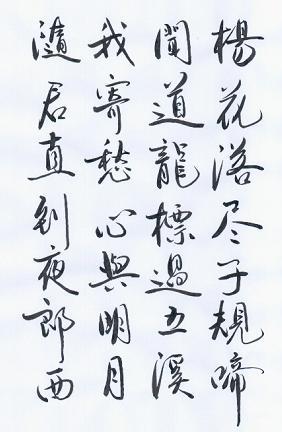 楊花落尽子規啼
聞道龍標過五溪
我寄愁心與明月
隨君直到夜郎西